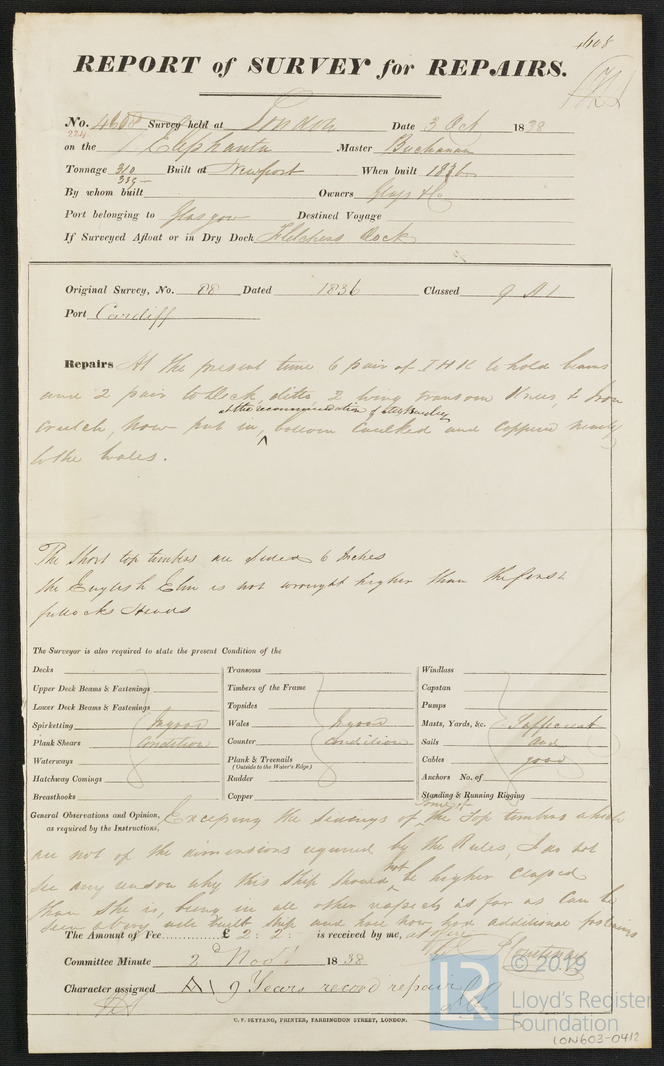 408
REPORT of SURVEY for REPAIRS.
No. 4608 Survey held at London Date 3 Oct 1838
224
on the Elephanta Master Buchanan
Tonnage 310 Built at Newport When built 1836
335
By whom built Owners Glass & Co
Port belonging to Glasgow Destined Voyage
If Surveyed Afloat or in Dry Dock Fletchers Dock
Original Survey, No. 88 Dated 1836 Classed 9 A1
Port Cardiff
Repairs At the present time 6 pair of I H K to hold beams
and 2 pair to deck ditto, 2 wing transom Knees, & Iron
at the recommendation of
crutch, now put in, bottom caulked and coppered nearly
to the wales.
The short top timbers are sided 6 Inches
the English Elm is not wrought higher than the first
futtocks Heads
The Surveyor is also required to state the present Condition of the
Decks
Upper Deck Beams & Fastenings
Lower Deck Beams & Fastenings
Spirketting In good
Plank Shears Condition
Waterways
Hatchway Comings
Breasthooks
Transoms
Timbers of the Frame
Topsides
Wales In good
Counter condition
Plank & Treenails
(Outside to the Water's Edge)
Rudder
Copper
Windlass
Capstan
Pumps
Masts, Yards, &c. Sufficient
Sails and
Cables good
Anchors No. of
Standing & Running Rigging
General Observations and Opinion, Excepting the sidings of some of the Top timbers which
as required by the Instructions,
are not of the dimensions required by the Rules, I do not
see any reason why this Ship should not be higher classed
than she is, being in all other respects as far as can be
seen a very well built ship and have now had additional fastenings
The Amount of Fee £ 2: 2: is received by me, at office
Courtenay
Committee Minute 2d Novr 1838
Character assigned A1 9 Years record repair
C. F. SEYFANG, PRINTER, FARRINGDON STREET, LONDON.
© 2019
Lloyd's Register
Foundation
LON603-0412